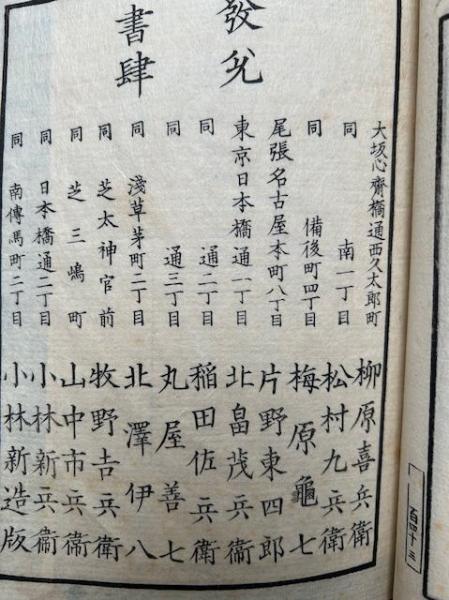 大坂心齋橋通西久太郎町 柳原喜兵衛
同 南一丁目 松村九兵衛
同 備後町四丁目 梅原龜七
尾張名古屋本町八丁目 片野東四郎
東京日本橋通一丁目 北畠茂兵衛
同 通二丁目 稲田佐兵衛
同 通三丁目 丸屋善七
同 淺草茅町二丁目 北澤伊八
同 芝太神宮前 牧野吉兵衛
同 芝三嶋町 山中市兵衛
同 日本橋通二丁目 小林新兵衛
同 南傳馬町二丁目 小林新造版
發兌
書肆
百四十三